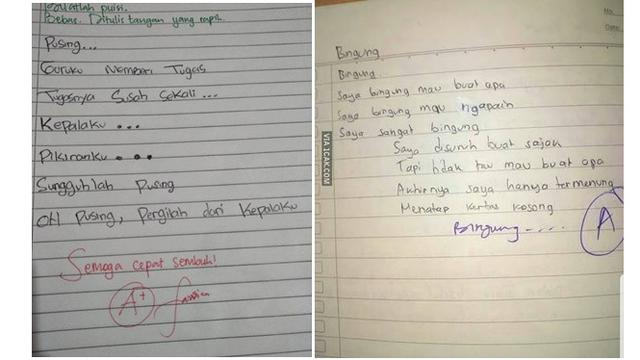 buatlah puisi.
Bebas. Ditulis tangan yang rapi.
Pusing...
Guruku Memberi Tugas
Tugasnya Susah Sekali ...
Kepalaku ...
Pikiranku ...
Sungguhlah Pusing
Oh Pusing, Pergilah dari Kepalaku
Semoga cepat sembuh!
A+
VIA 1CAK.COM
No.
Date
Bingung
Bingung
Saya bingung mau buat apa
Saya bingung mau ngapain
Saya sangat bingung
Saya disuruh buat sajak
Tapi tidak tau mau buat apa
Akhirnya saya hanya termenung
Menatap kertas kosong
Bingung.....
A